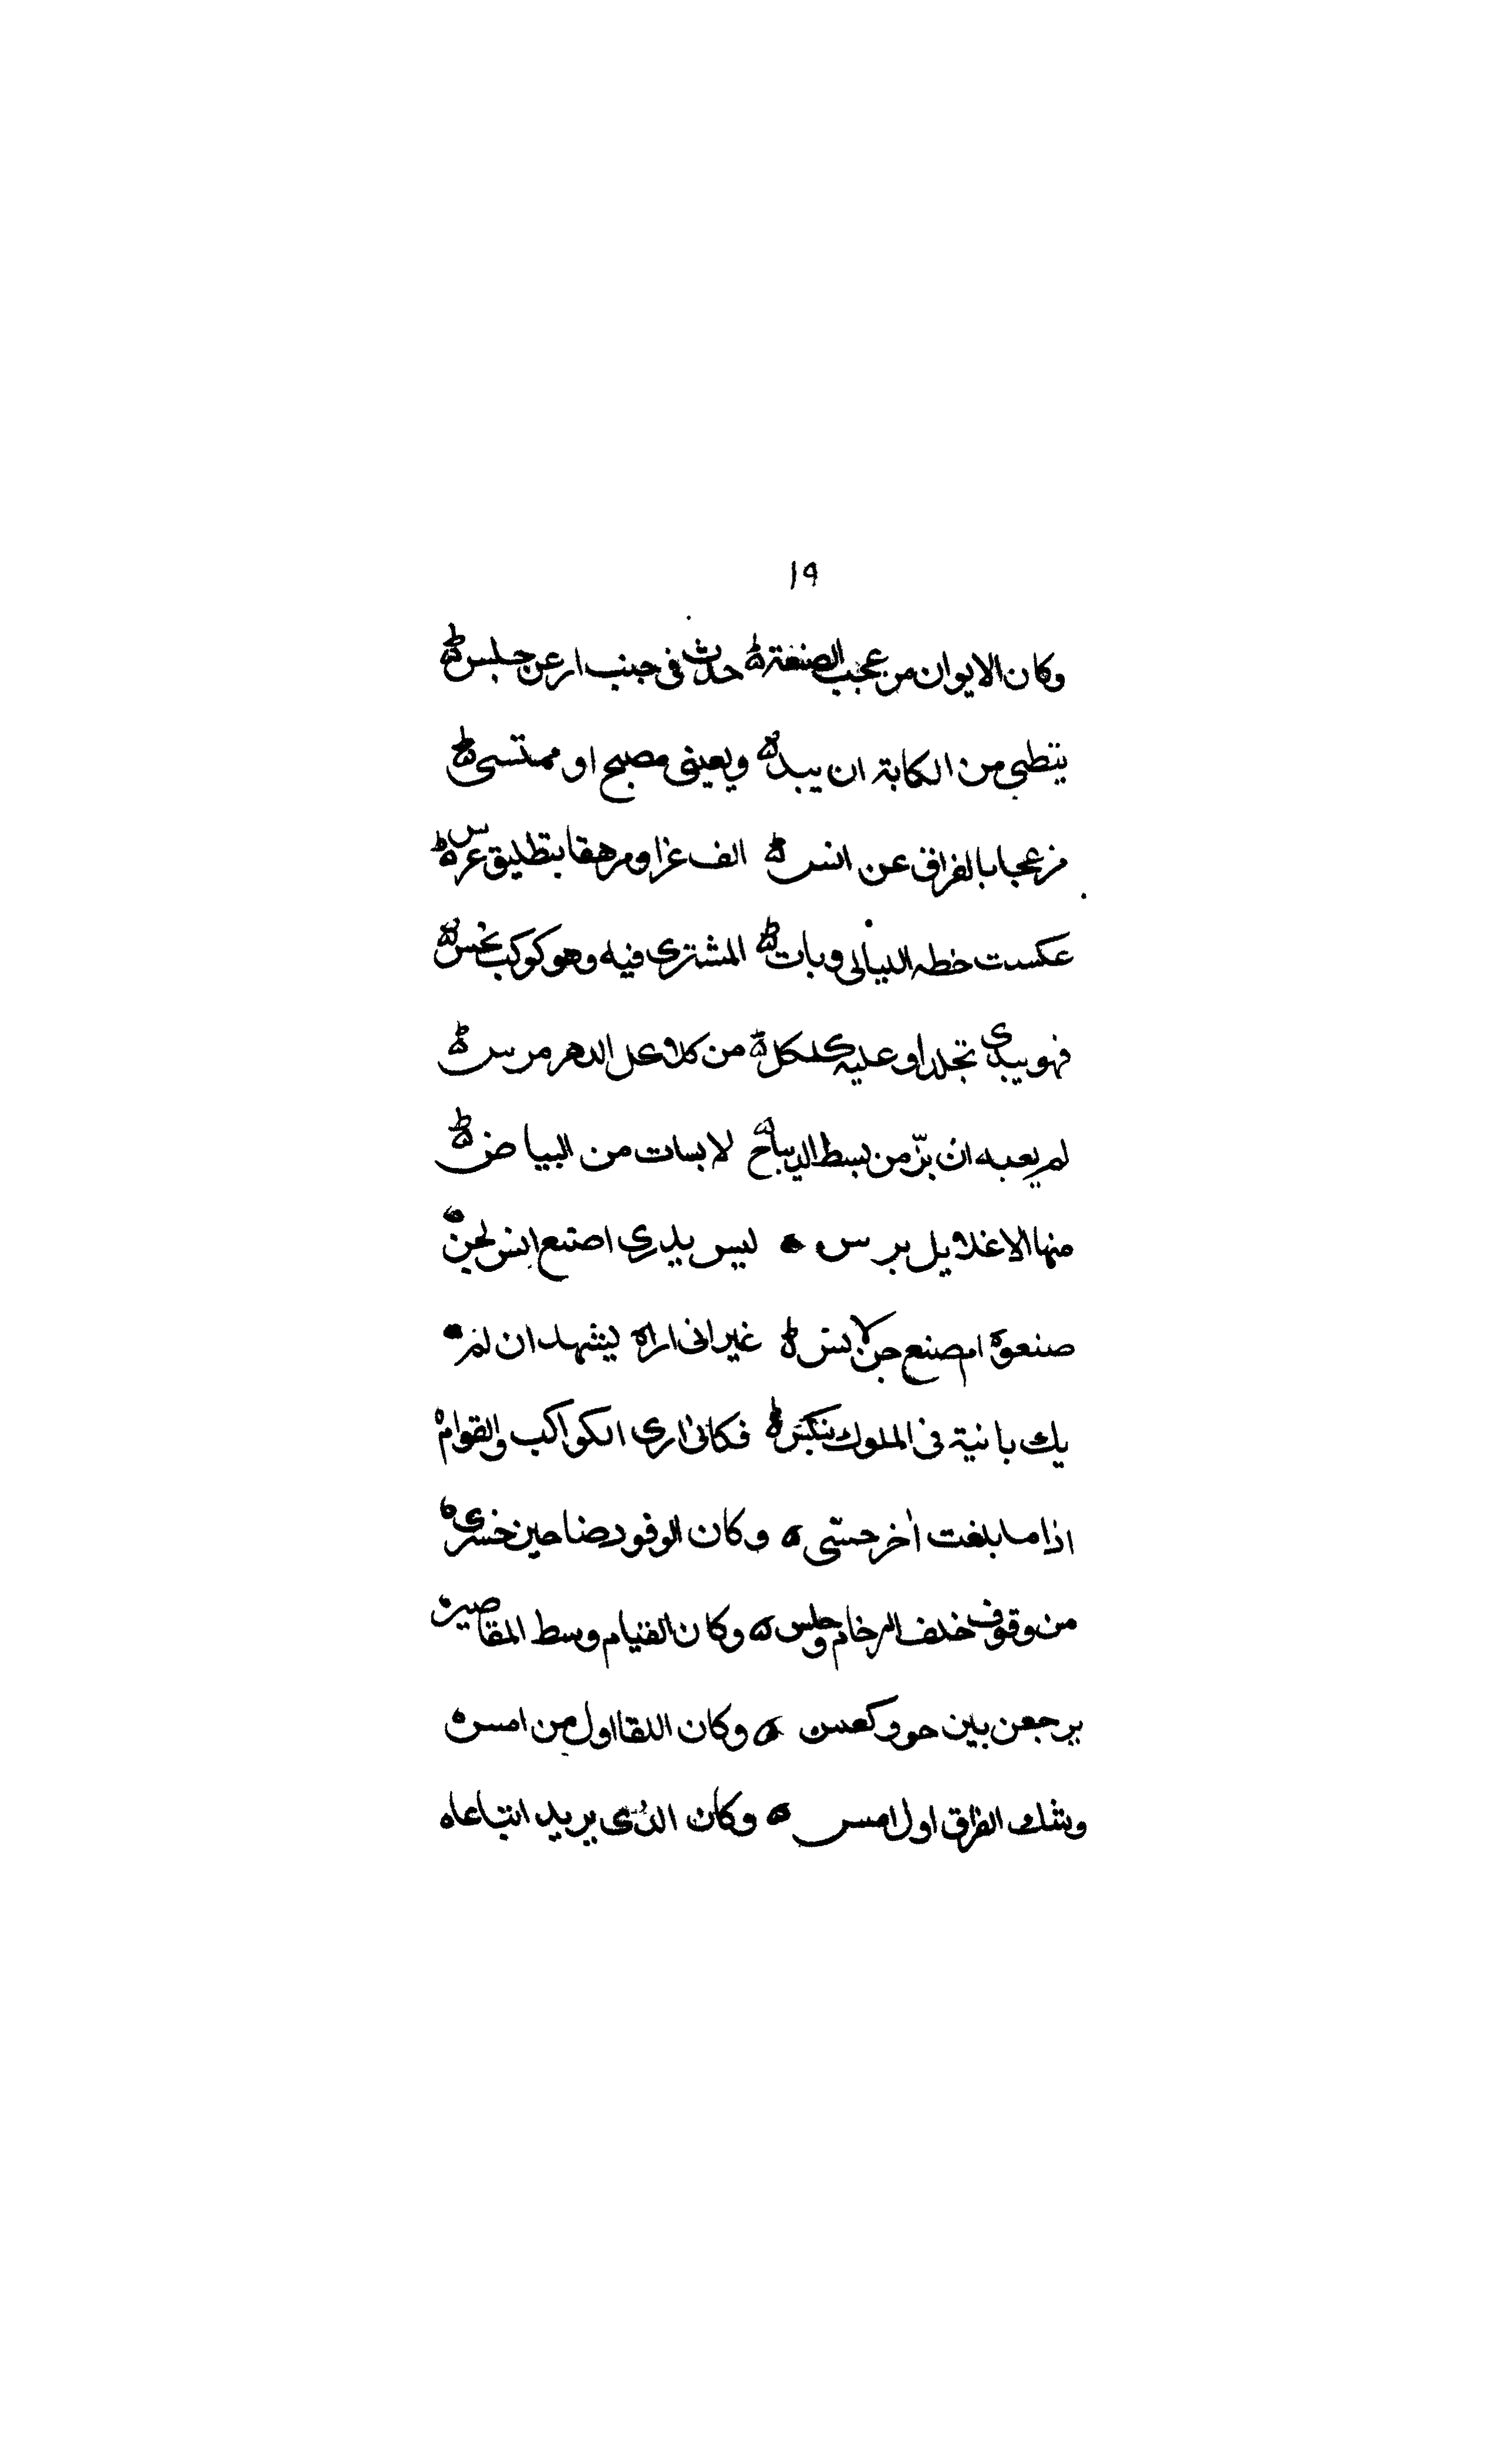 ١٩
وكان الايوان من عجب الصنعة ه حدث في جنب ارعن جلس ه
يتظني من الكابة ان يبد ه ويعيني مصبح او ممتسى ه
مزعجا بالفراق عن انس ه الف عزا ومرهقا بتطليق عرس ه
عكست خطه الليالي وبات ه المشترى فيه وهو كوكب نحس ه
فهو يبدى تجلدا وعليه كلكل ه من كلاكل الدهر مرس ه
لم يعبه ان بز من بسط الديباج ه لابسات من البياض ه
منها الا غلايل برس ه ليس يدرى اصنع انس لجن ه
صنعوة ام صنع جن لانس ه غير انى اراه يشهد ان لم ه
يك بانية في الملوك بنكس ه فكانى ارى الكواكب والقوام ه
اذا ما بلغت اخر حسى ه وكان الوفود ضاحين خسرى ه
من وقوف خلف الزحام وجلس ه وكان القيام وسط المقاصير
يرجعن بين حو وكعس ه وكان اللقا اول من امس ه
وشك الفراق اول امس ه وكان الذى يريد اتباعاه